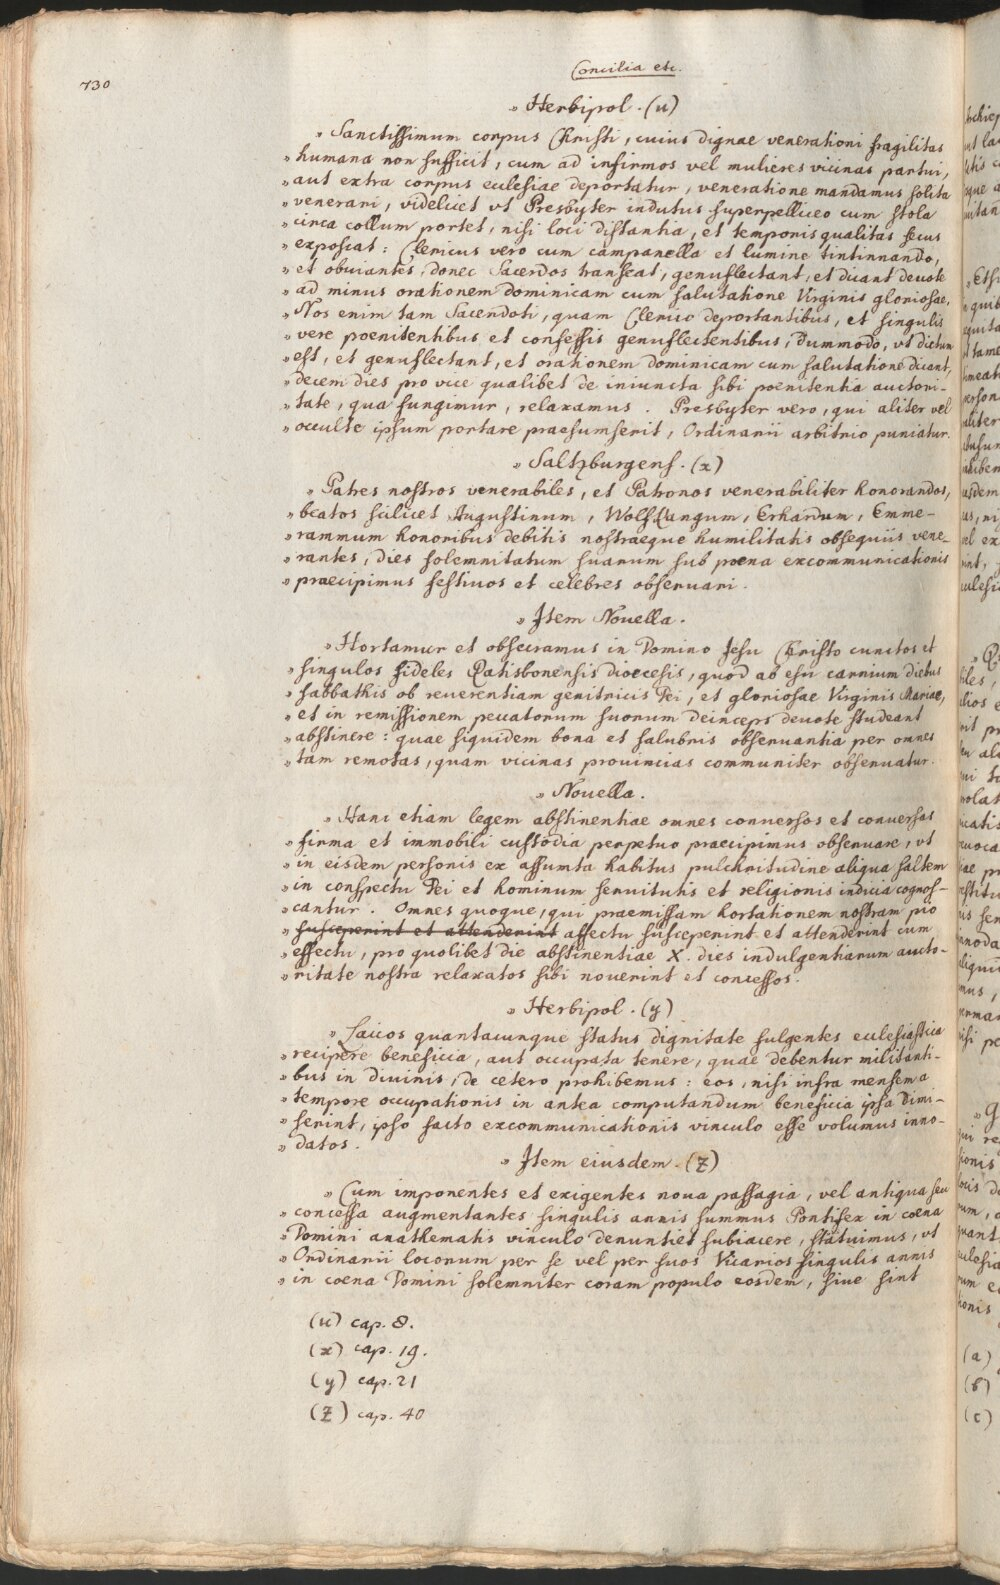 730
Concilia etc.
» Herbipol. (u)
» Sanctissimum corpus Christi, cuius dignae venerationi fragilitas
» humana non sufficit, cum ad infirmos vel mulieres vicinas partui,
» aut extra corpus ecclesiae deportatur, veneratione mandamus solita
» venerari, videlicet vt Presbyter indutus superpelliceo cum stola
» circa collum portet, nisi loci distantia, et temporis qualitas secus
» exposcat: Clericus vero cum campanella et lumine tintinnando,
» et obuiantes, donec Sacerdos transeat, genuflectant, et dicant deuote
» ad minus orationem dominicam cum salutatione Virginis gloriosae.
» Nos enim tam Sacerdoti, quam Clerico deportantibus, et singulis
» vere poenitentibus et confessis genuflectentibus, dummodo, vt dictum
» est, et genuflectant, et orationem dominicam cum salutatione dicant,
» decem dies pro vice qualibet de iniuncta sibi poenitentia auctori-
» tate, qua fungimur, relaxamus. Presbyter vero, qui aliter vel
» occulte ipsum portare praesumserit, Ordinarii arbitrio puniatur.
» Saltzburgens. (x)
» Patres nostros venerabiles, et Patronos venerabiliter honorandos,
» beatos scilicet Augustinum, Wolfgangum, Erhardum, Emme-
» rammum honoribus debitis nostraeque humilitatis obsequiis vene-
» rantes, dies solemnitatum suarum sub poena excommunicationis
» praecipimus festiuos et celebres obseruari.
» Item Nouella.
» Hortamur et obsecramus in Domino Jesu Christo cunctos et
» singulos fideles Ratisbonensis dioecesis, quod ab esu carnium diebus
» sabbathis ob reuerentiam genitricis Dei, et gloriosae Virginis Mariae,
» et in remissionem peccatorum suorum deinceps deuote studeant
» abstinere: quae siquidem bona et salubris obseruantia per omnes
» tam remotas, quam vicinas prouincias communiter obseruatur.
» Nouella.
» Hanc etiam legem abstinentiae omnes conuersos et conuersas
» firma et immobili custodia perpetuo praecipimus obseruare, vt
» in eisdem personis ex assumta habitus pulchritudine aliqua saltem
» in conspectu Dei et hominum seruitutis et religionis indicia cognos-
» cantur. Omnes quoque, qui praemissam hortationem nostram pio
» susceperint et attenderint affectu susceperint et attenderint cum
» effectu, pro quolibet die abstinentiae X. dies indulgentiarum aucto-
» ritate nostra relaxatos sibi nouerint et concessos.
» Herbipol. (y)
» Laicos quantacunque status dignitate fulgentes ecclesiastica
» recipere beneficia, aut occupata tenere, quae debentur militanti-
» bus in diuinis, de cetero prohibemus: eos, nisi infra mensem a
» tempore occupationis in antea computandum beneficia ipsa dimi-
» serint, ipso facto excommunicationis vinculo esse volumus inno-
» datos.
» Item eiusdem. (z)
» Cum imponentes et exigentes noua passagia, vel antiqua seu
» concessa augmentantes singulis annis summus Pontifex in coena
» Domini anathematis vinculo denuntiet subiacere, statuimus, vt
» Ordinarii locorum per se vel per suos Vicarios singulis annis
» in coena Domini solemniter coram populo eosdem, siue sint
(u) cap. 8.
(x) cap. 19.
(y) cap. 21
(z) cap. 40
(a)
(b)
(c)